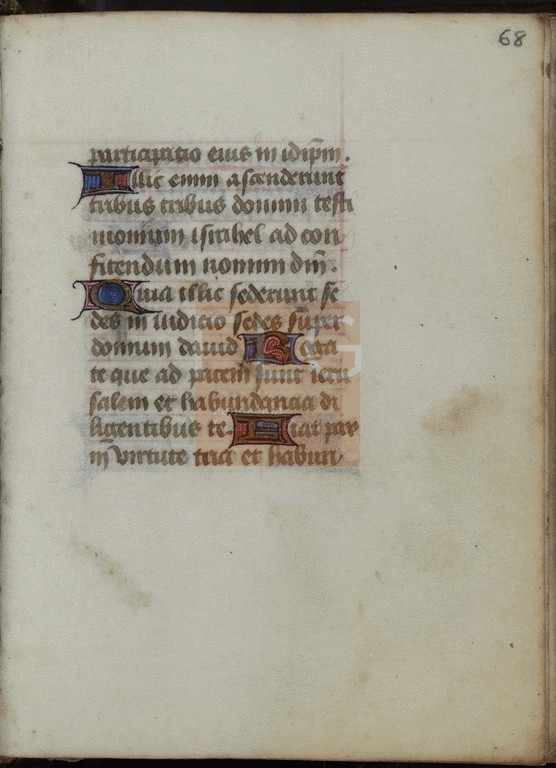 68
participatio eius in idip̄m.
Illic enim ascenderunt
tribus tribus domini testi
monium israhel ad con
fitendum nomini dn̄i.
Quia illic sederunt se
des in iudicio sedes super
domum dauid Roga
te que ad pacem sunt ieru
salem et habundancia di
ligentibus te. Fiat pax
in virtute tua et habun